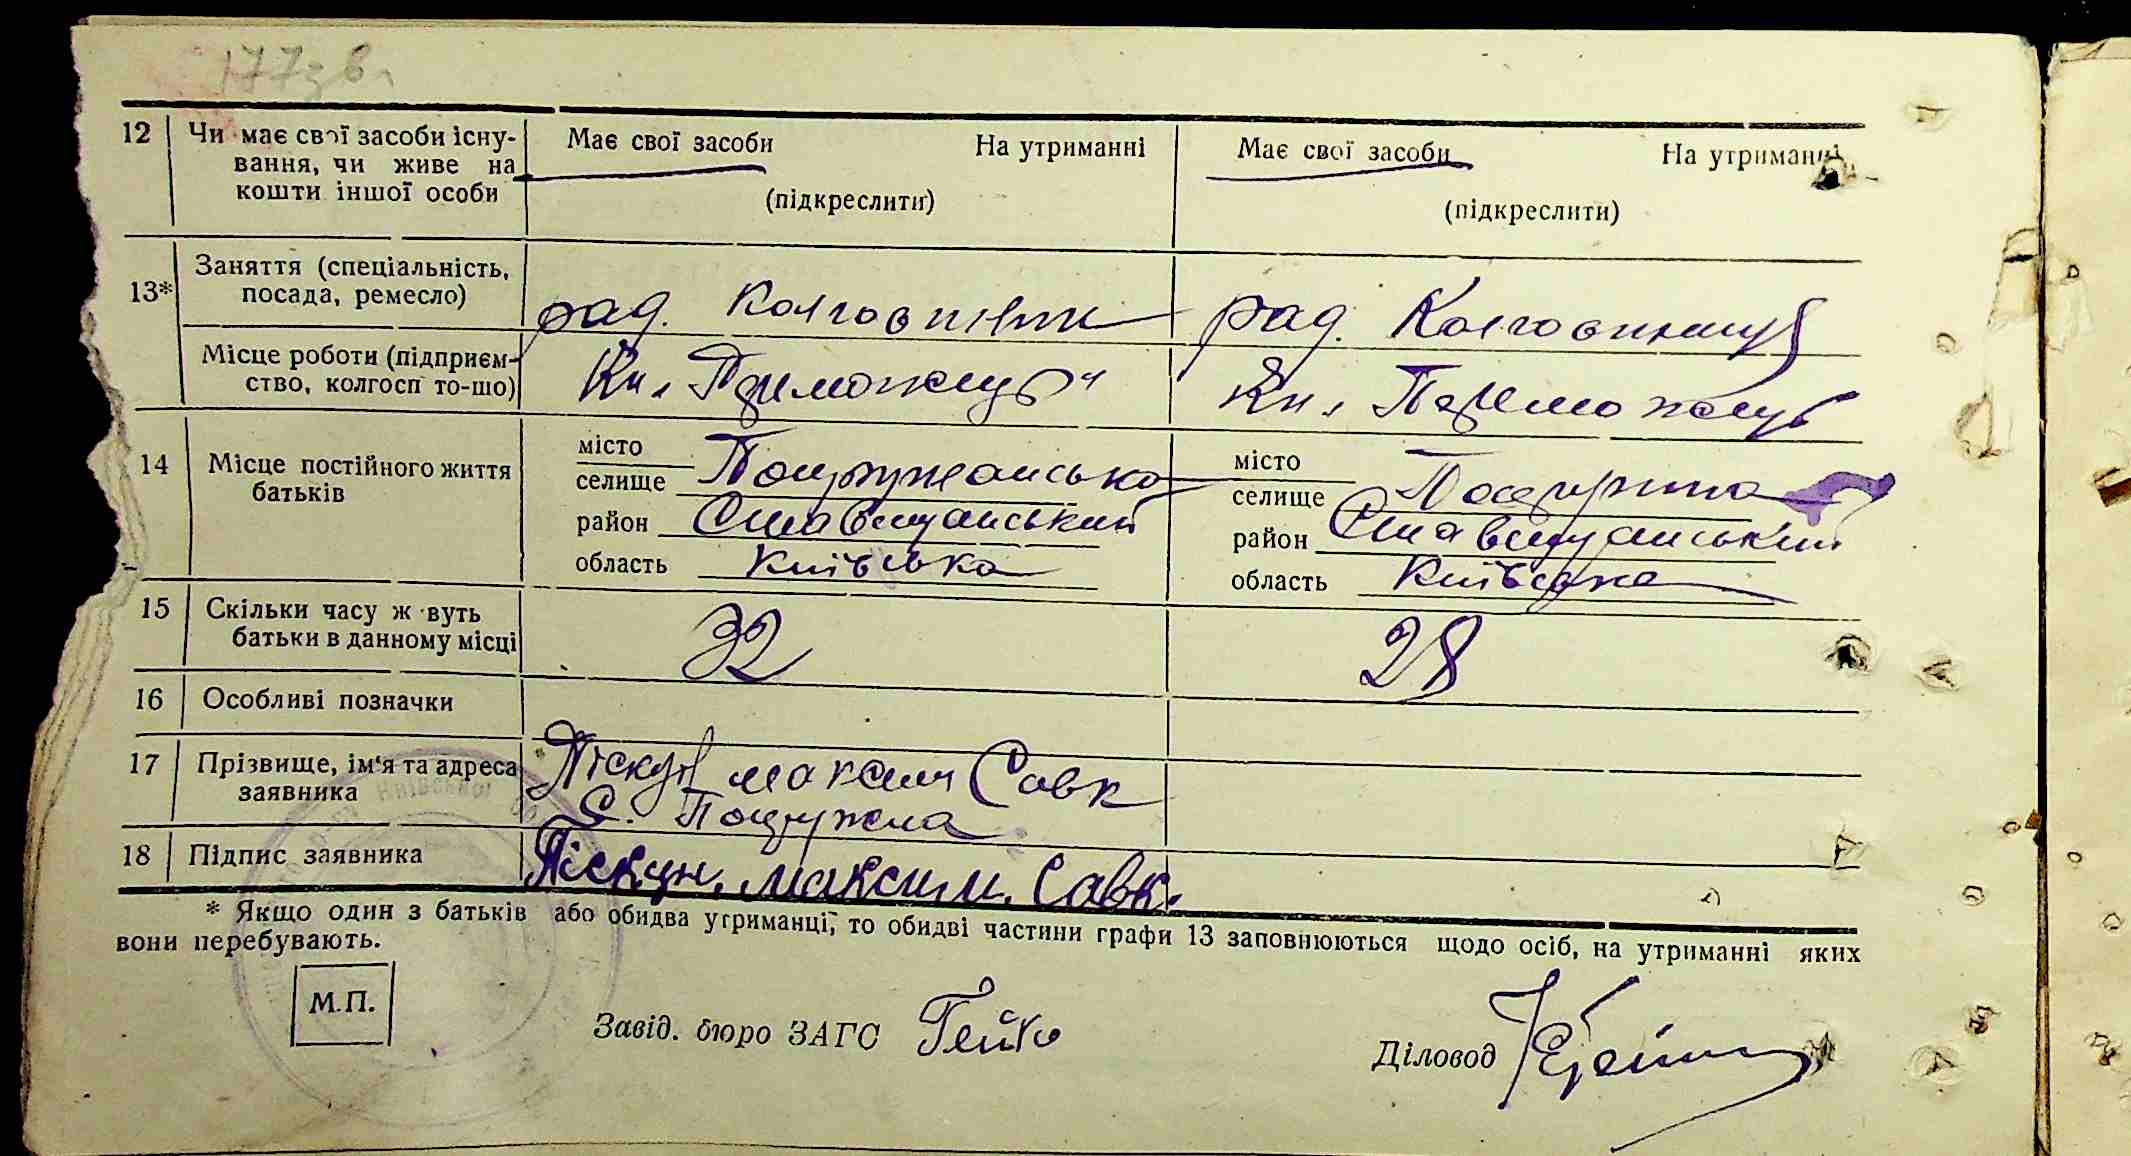 12 Чи має свої засоби існу- Має свої засоби На утриманні Має свої засоби На утриманні
вання, чи живе на
кошти іншої особи (підкреслити) (підкреслити)
13* Заняття (спеціальність,
посада, ремесло) рад. Колгоспник рад. Колгоспниця
Місце роботи (підприєм-
ство, колгосп то-що)
14 Місце постійного життя місто місто
батьків селище селище
район Ставищанський район Ставищанський
область Київська область Київська
15 Скільки часу ж вуть
батьки в данному місці 32 28
16 Особливі позначки
17 Прізвище, ім'я та адреса Піскун максим Савк
заявника С.
18 Підпис заявника Піскун. максим. Савк.
* Якщо один з батьків або обидва утриманці, то обидві частини графи 13 заповнюються щодо осіб, на утриманні яких
вони перебувають.
М.П.
Завід. бюро ЗАГС Гейко
Діловод